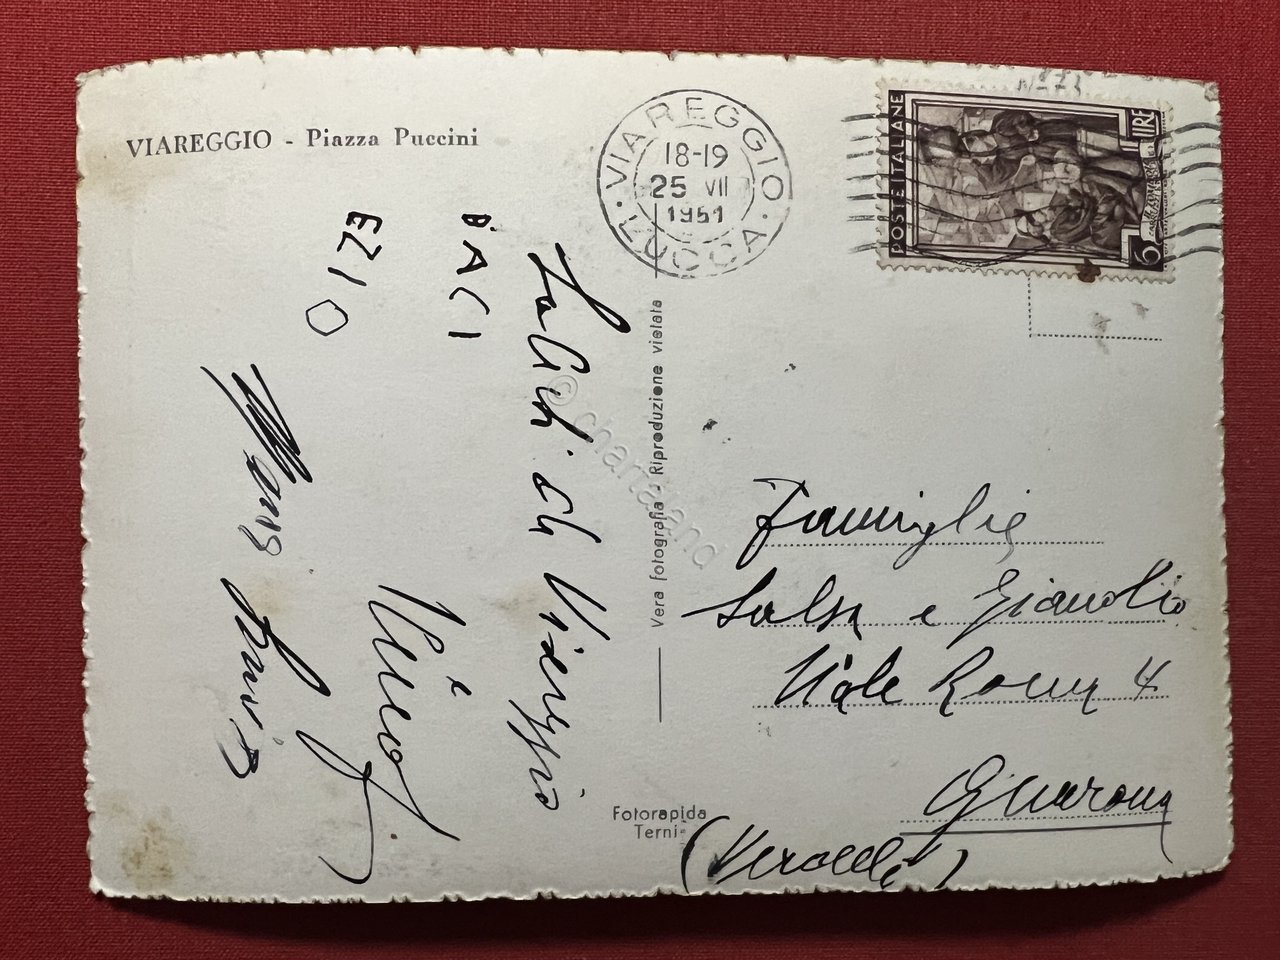 VIAREGGIO - Piazza Puccini
VIAREGGIO
18-19
25 VII
1951
LUCCA
POSTE ITALIANE
LIRE
6
Saluti da Viareggio
BACI
EZIO
Vera fotografia - Riproduzione vietata
Fotorapida
Terni
Famiglia
Salsa e Gianolio
Viale Roma 4
(Vercelli)
© chartaland